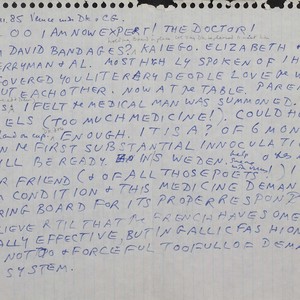 .85 Venice with Dk + CE.
OO I AM NOW EXPERT! THE DOCTOR!
DAVID BANDAGES? KAIEGO. ELIZABETH
ERRYMAN & AL. MOST HIGHLY SPOKEN OF I H
OVERED YOU LITERARY PEOPLE LOVE
UT EACH OTHER. NOW AT THE TABLE. PARE
I FELT THE MEDICAL MAN WAS SUMMONED.
ELS (TOO MUCH MEDICINE!). COULD HO
ENOUGH. IT IS A? OF 6 MON
THE FIRST SUBSTANTIAL INNOCULATIO
ILL BE READY IN S WEDEN. help
R FRIEND (& OF ALL THOSE POETS!) I
CONDITION & THIS MEDICINE DEMAN
RING BOARD FOR ITS PROPER RESPON
LIEVE RTIL THAT THE FRENCH HAVE SOME
ALLY EFFECTIVE, BUT IN GALLIC FASHION
NOT GO & FORCEFUL TOO FULL OF DEMA
SYSTEM.